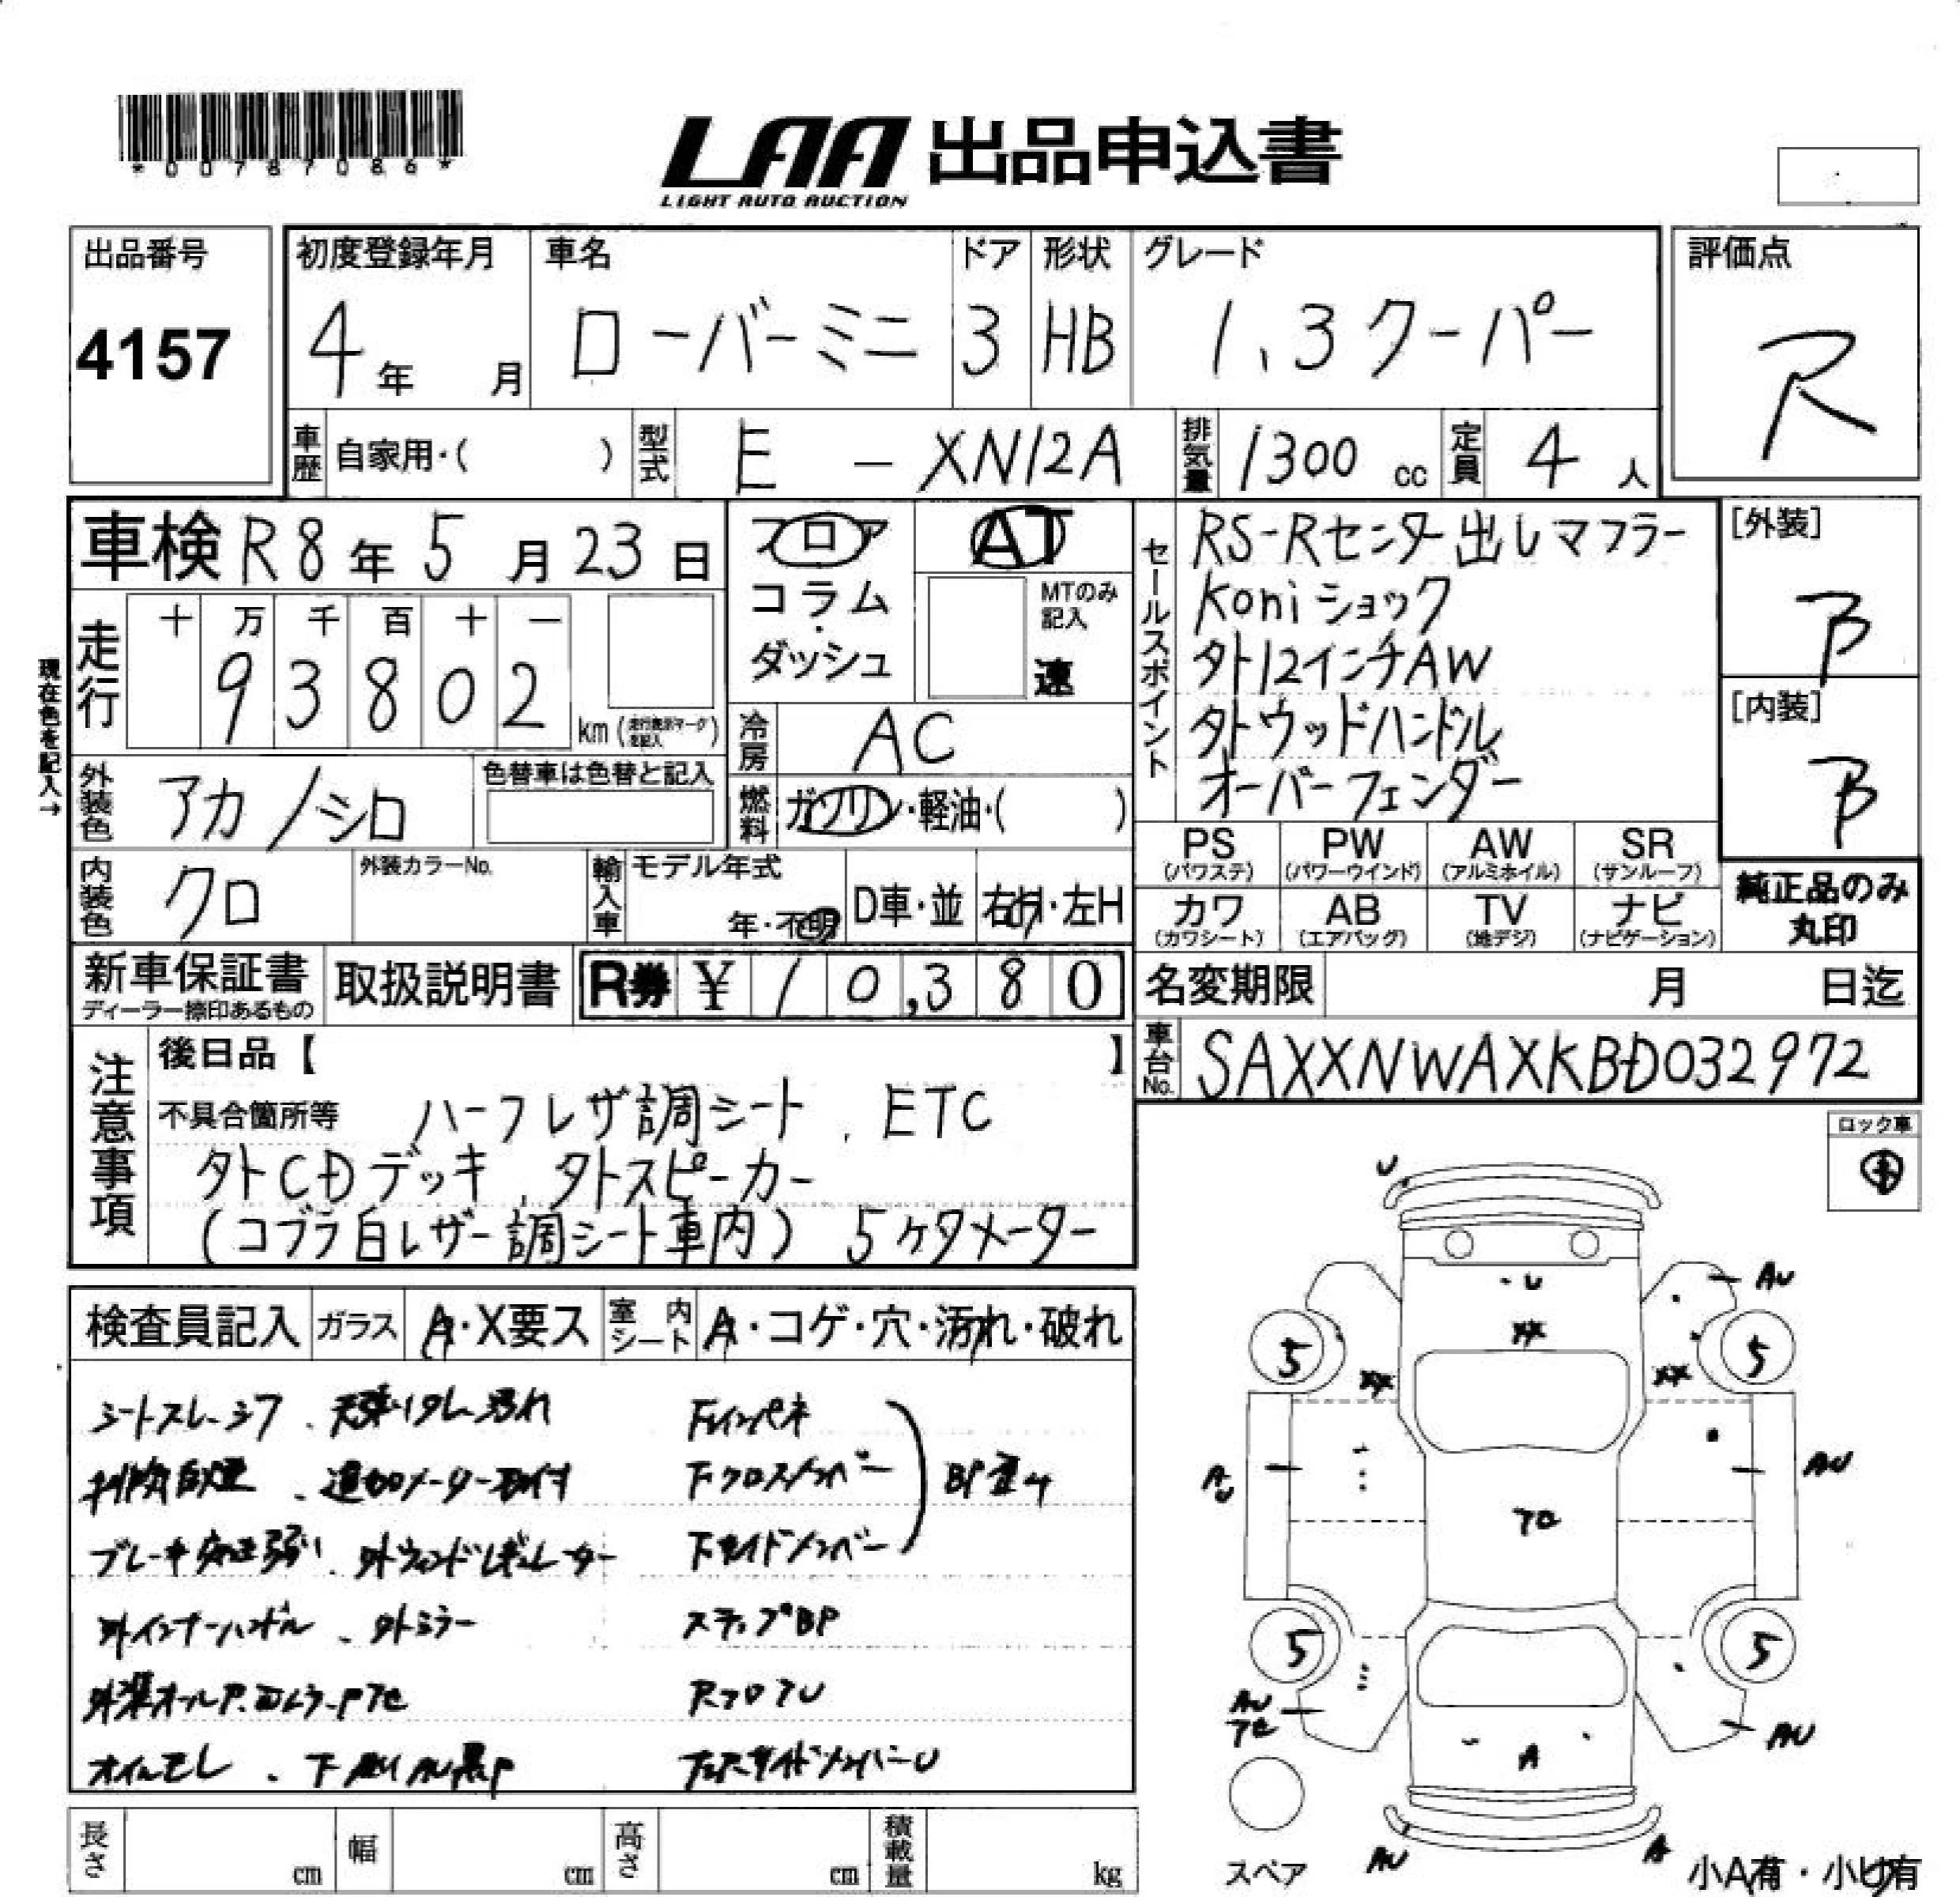 *00787086*
LAA 出品申込書
LIGHT AUTO AUCTION
出品番号
4157
初度登録年月
4年 月
車名
ローバーミニ
ドア
3
形状
HB
グレード
1.3クーパー
評価点
R
車歴 自家用・( )
型式 E - XN12A
排気量 1300 cc
定員 4 人
車検 R8年 5月 23日
フロア
コラム
・
ダッシュ
AT
MTのみ記入
速
セールスポイント
RS-Rセンター出しマフラー
Koniショック
外12インチAW
外ウッドハンドル
オーバーフェンダー
[外装]
B
[内装]
B
現在色を記入→
走行
十 万 千 百 十 一
9 3 8 0 2
km
冷房 AC
外装色 アカ/シロ
色替車は色替と記入
燃料 ガソリン・軽油・( )
内装色 クロ
外装カラーNo.
輸入車
モデル年式
年・不明
D車・並
右H・左H
PS (パワステ)
PW (パワーウインド)
AW (アルミホイル)
SR (サンルーフ)
カワ (カワシート)
AB (エアバッグ)
TV (地デジ)
ナビ (ナビゲーション)
純正品のみ
丸印
新車保証書
ディーラー捺印あるもの
取扱説明書
R券 ¥10,380
名変期限 月 日迄
車台No. SAXXNWAXKBD032972
注意事項
後日品【 】
不具合箇所等 ハーフレザ調シート、ETC
外CDデッキ、外スピーカー
(コブラ白レザー調シート車内) 5ケタメーター
ロック車
検査員記入
ガラス A・X要ス
室内シート A・コゲ・穴・汚れ・破れ
シートスレ・シワ、天張りタレ・汚れ
排気白煙、追加メーター取付
ブレーキ 弱い、外ウィンドレギュレーター
外インナーハンドル、外ミラー
オイルモレ、下廻りAU黒P
下インパネ
下クロスメンバー
下サイドメンバー
BP歪み
ステップBP
RフロアU
サイドメンバーU
U
U
XX
XX
XX
AU
5
5
A
U
AU
5
5
AU
AU
A
AU
A
スペア
小A有・小U有
長さ cm
幅 cm
高さ cm
積載量 kg